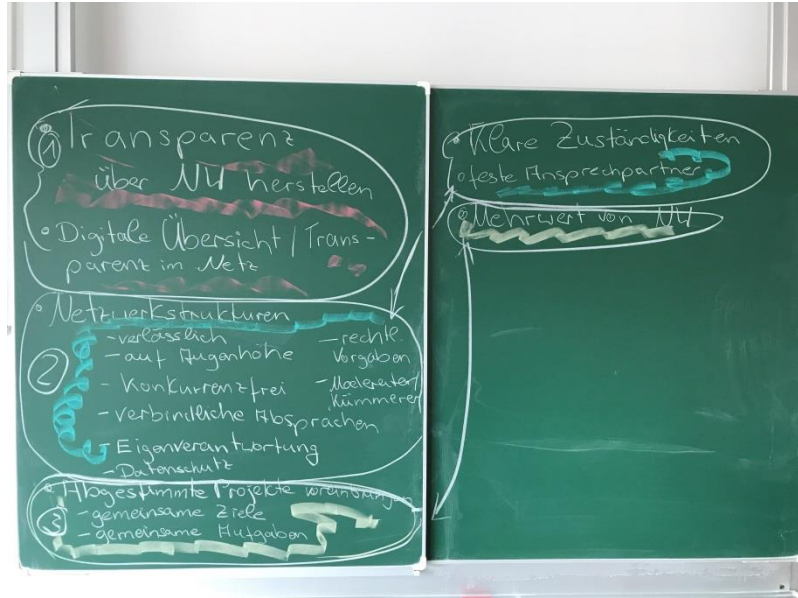 ① • Transparenz
über NW herstellen
• Digitale Übersicht / Trans-
parenz im Netz
② • Netzwerkstrukturen
- verlässlich
- auf Augenhöhe
- Konkurrenzfrei
- verbindliche Absprachen
- Eigenverantwortung
- Datenschutz
- rechtl.
Vorgaben
- Moderator/
Kümmerer
③ • Abgestimmte Projekte voranbringen
- gemeinsame Ziele
- gemeinsame Aufgaben
• Klare Zuständigkeiten
• feste Ansprechpartner
• Mehrwert von NW